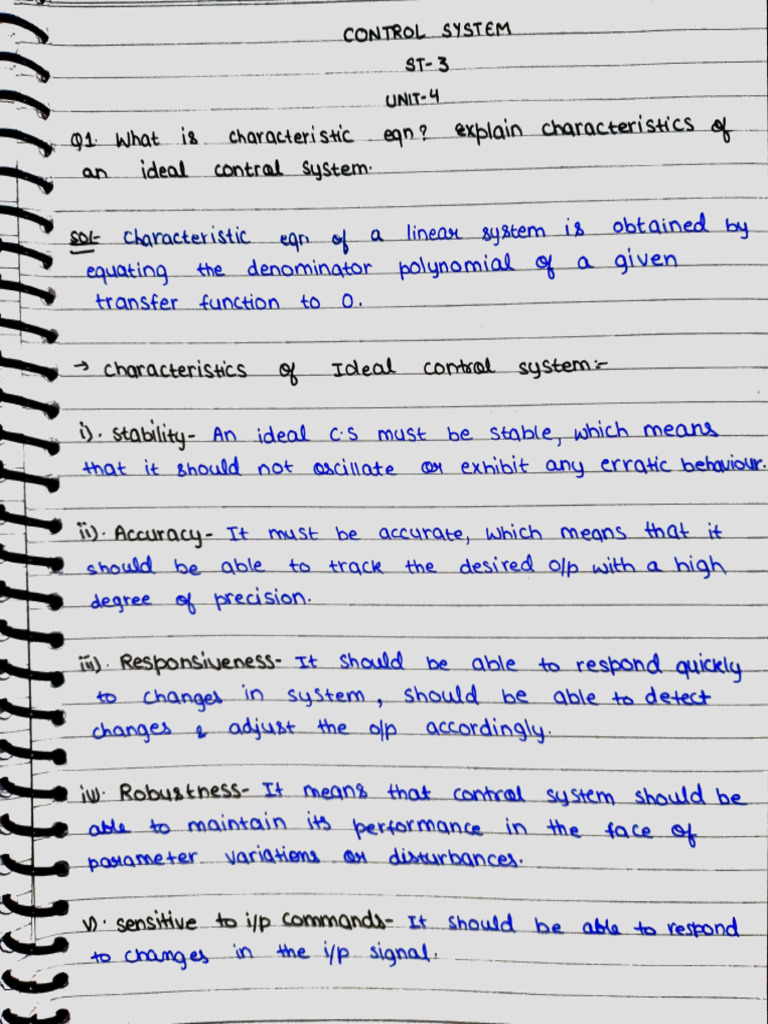 CONTROL SYSTEM
ST-3
UNIT-4
Q1. What is characteristic eqn? explain characteristics of
an ideal control system.
Sol- Characteristic eqn of a linear system is obtained by
equating the denominator polynomial of a given
transfer function to 0.
→ Characteristics of Ideal control system:-
i). Stability- An ideal C.S must be stable, which means
that it should not oscillate or exhibit any erratic behaviour.
ii). Accuracy- It must be accurate, which means that it
should be able to track the desired o/p with a high
degree of precision.
iii). Responsiveness- It should be able to respond quickly
to changes in system, should be able to detect
changes & adjust the o/p accordingly.
iv). Robustness- It means that control system should be
able to maintain its performance in the face of
parameter variations or disturbances.
v). sensitive to i/p commands- It should be able to respond
to changes in the i/p signal.